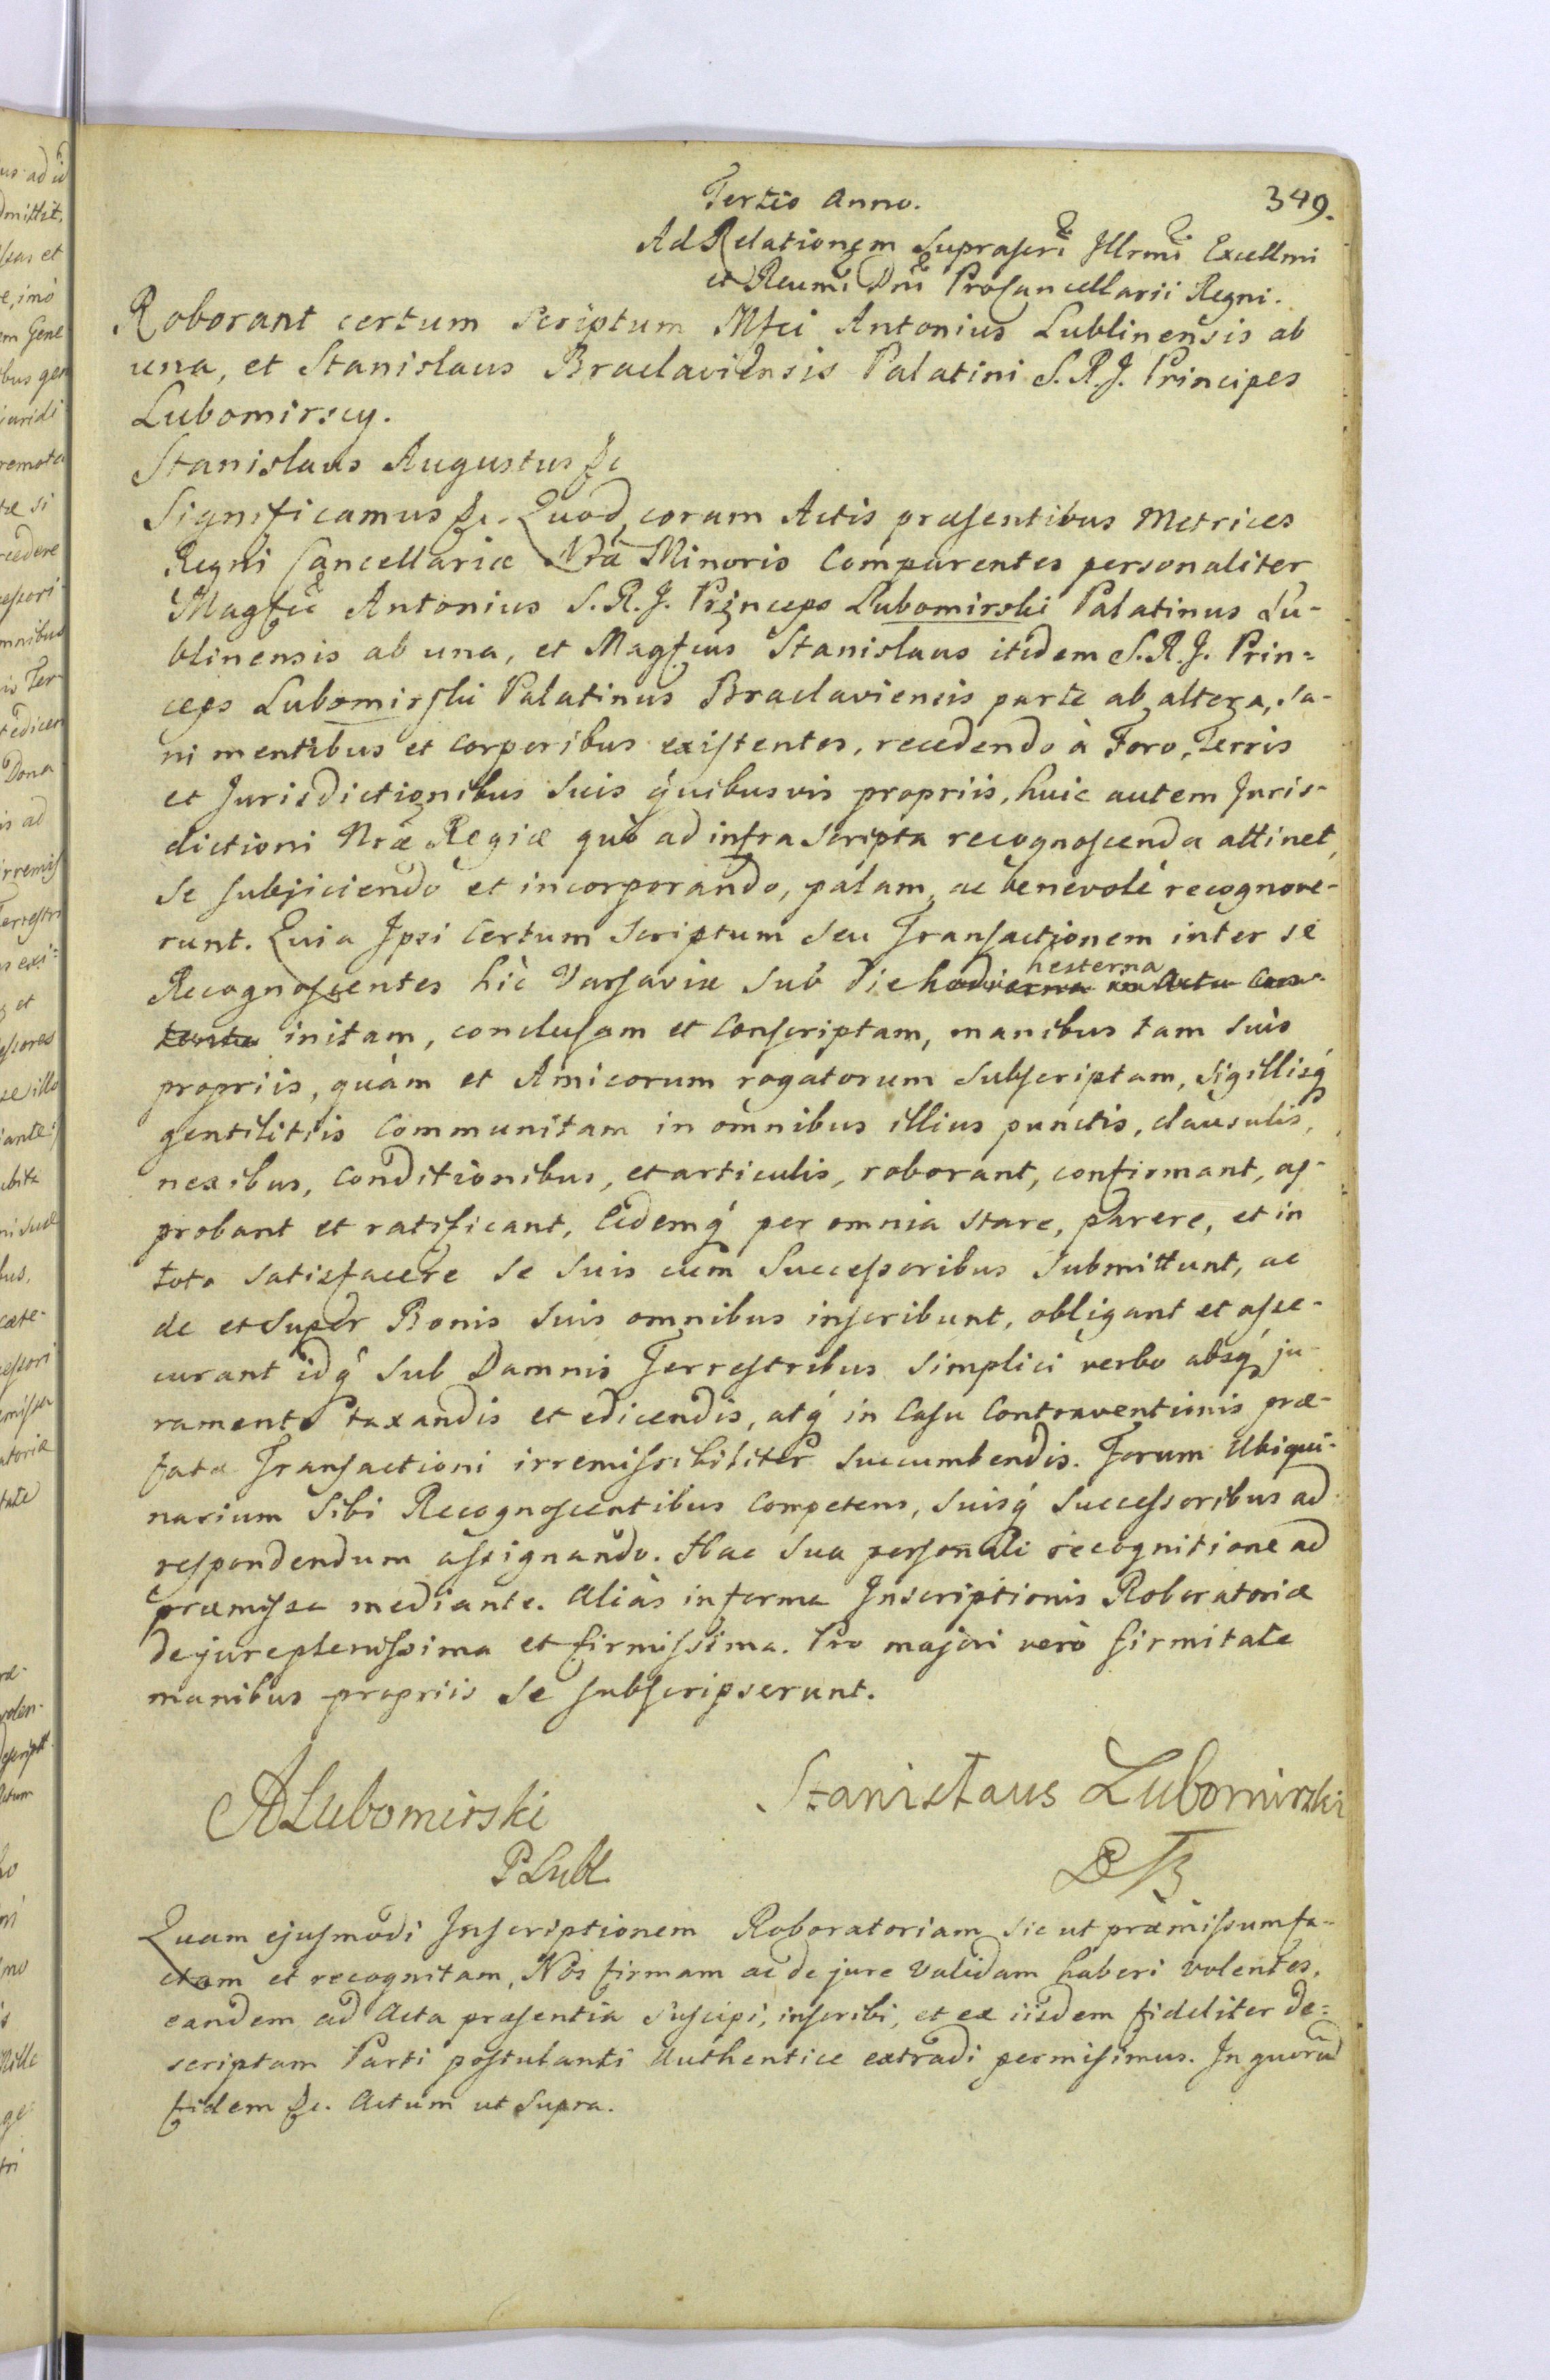 Tertio Anno.
349.
Ad Relationem Suprascri Illrmi Excellmi
et Reumi Dni Procancellarii Regni.
Roborant certum Scriptum Mfci Antonius Lublinensis ab
una, et Stanislaus Braclaviensis Palatini S. R. J. Principes
Lubomirscy.
Stanislaus Augustus &c
Significamus &c. Quod coram Actis præsentibus Metrices
Regni Cancellariæ Nræ Minoris Comparentes personaliter
Magfci Antonius S. R. J. Princeps Lubomirski Palatinus Lu-
blinensis ab una, et Magfcus Stanislaus itidem S. R. J. Prin=
ceps Lubomirski Palatinus Braclaviensis parte ab altera, sa-
ni mentibus et corporibus existentes, recedendo à Foro, Terris
et Jurisdictionibus Suis quibusvis propriis, huic autem Juris-
dictioni Nræ Regiæ quò ad infra scripta recognoscenda attinet,
Se subjiciendo et incorporando, palam, ac benevolè recognove-
runt. Quia Ipsi Certum Scriptum Seu Transactionem inter se
Recognoscentes hîc Varsaviæ Sub Die hodierna in Actu Con- hesterna
tenta initam, conclusam et Conscriptam, manibus tam suis
propriis, quàm et Amicorum rogatorum Subscriptam, Sigillisq́
gentilitiis Communitam in omnibus illius punctis, clausulis,
nexibus, Conditionibus, et articulis, roborant, confirmant, ap-
probant et ratificant, Eidemq́ per omnia stare, parere, et in
toto Satisfacere Se Suis cum Successoribus Submittunt, ac
de et Super Bonis Suis omnibus inscribunt, obligant et asse-
curant idq́ Sub Damnis Terrestribus Simplici verbo absq́ ju-
ramento taxandis et edicendis, atq́ in Casu Contraventionis præ-
fatæ Transactioni irremissibiliter Succumbendis. Forum Ubiqui-
narium Sibi Recognoscentibus Competens, Suisq́ Successoribus ad
respondendum assignando. Hac Sua personali recognitione ad
præmissa mediante. Aliàs in forma Inscriptionis Roboratoriæ
de jure plenissima et firmissima. Pro majori verò firmitate
manibus propriis Se subscripserunt.
ALubomirski
Stanisłaus Lubomirski
P Lubl
Quam ejusmodi Inscriptionem Roboratoriam Sic ut præmissum fa-
ctam et recognitam, Nos firmam ac de jure Validam haberi volentes,
eandem ad Acta præsentia Suscipi, inscribi, et ex iisdem fideliter de=
scriptam Parti postulanti Authentice extradi permisimus. In quorũ
fidem &c. Actum ut Supra.